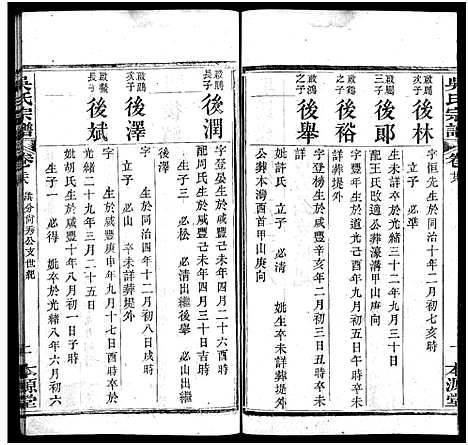 吳氏宗譜
卷末
本源堂
啟鵾三子
後林
字恒先生於同治十年二月初七亥時
生未詳卒於光緒三十二年九月三十日
啟鵬之子
後郎
配王氏改適公葬濠溝甲山庚向
啟鴻之子
後裕
字登 生於道光 年 月初八日戌時卒未
詳葬堤外
後舉
字登榜生於咸豐辛亥年二月初三日卯時
妣許氏 立子 必清 妣生卒未詳葬堤外
公葬本灣酉首甲山庚向
吳氏宗譜
卷末
洪分尚秀公支世紀
本源堂
啟鵬長子
後潤
字登晏生於咸豐己未年四月二十六酉時
配周氏生於咸豐己未年四月三十日吉時
生子三 必松 必清出繼後舉 必
啟鵬次子
後澤
生於同治四年十二月初八日戌時
立子 必山 卒未詳葬堤外
長子
後斌
生於咸豐庚申年九月十七日酉時卒於
光緒二十九年三月二十五日
妣胡氏生於咸豐十年八月初一日子時
生子一 必得 妣卒於光緒八年六月初六